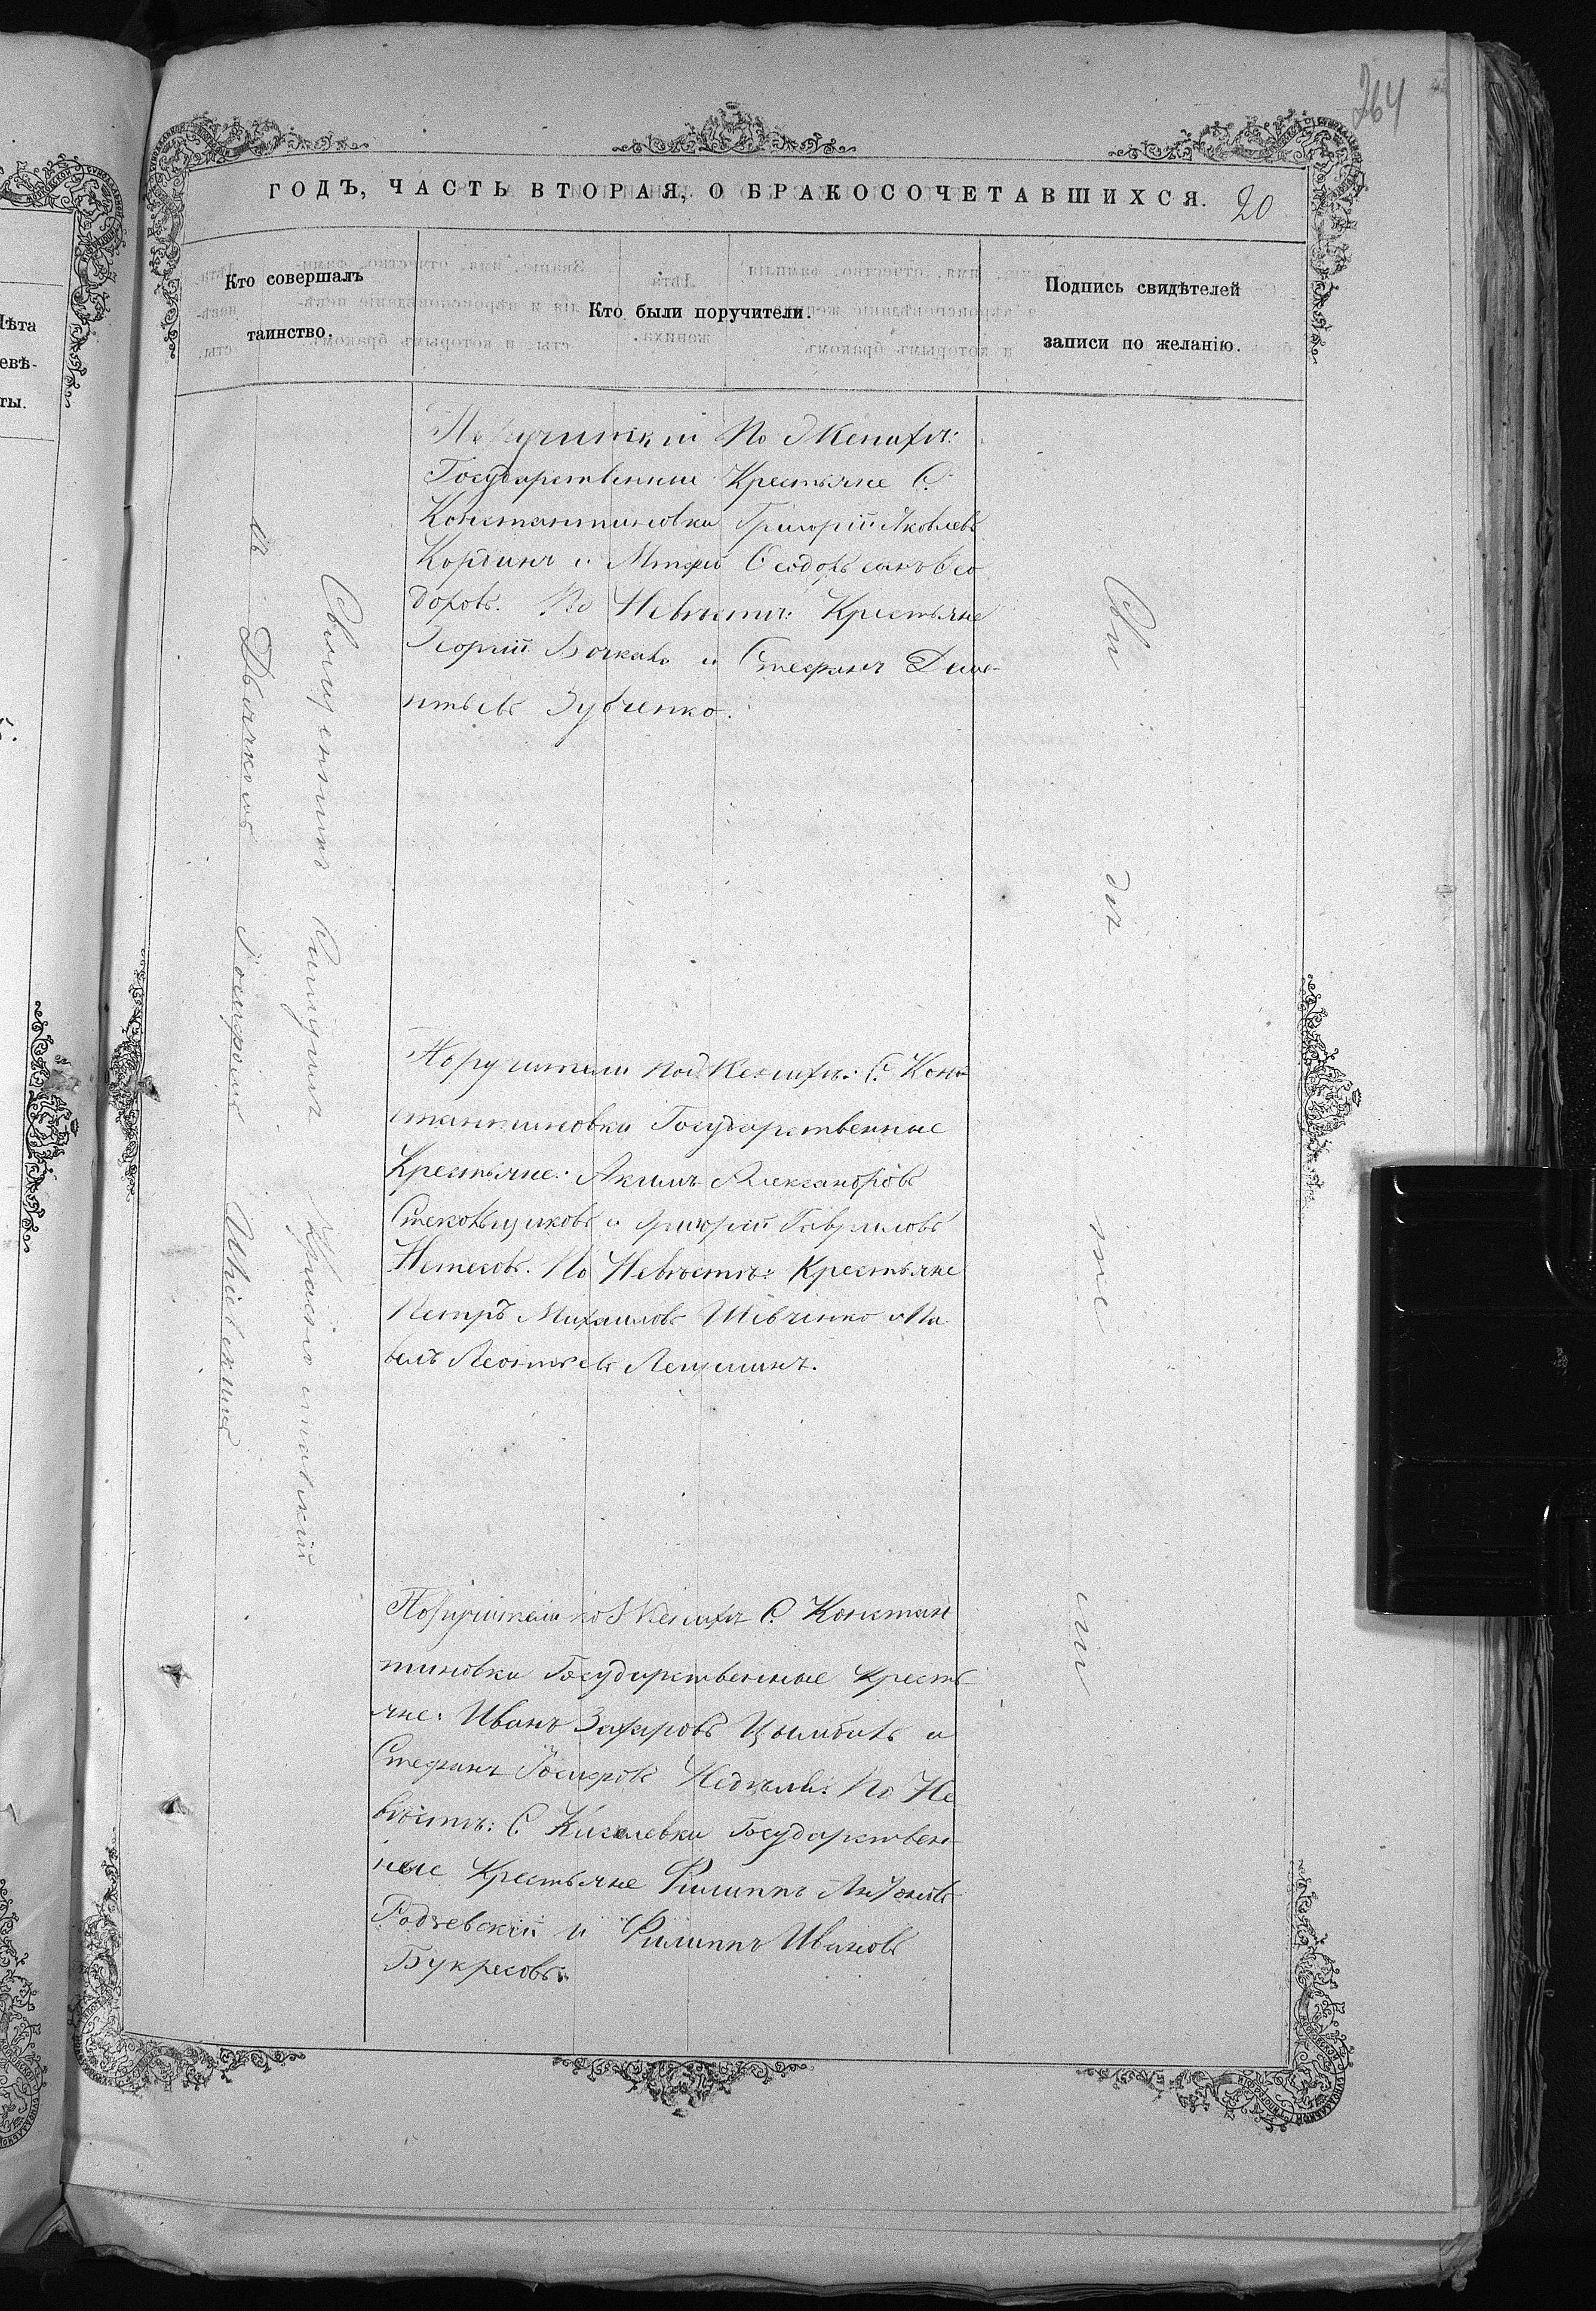 264
ГОДЪ, ЧАСТЬ ВТОРАЯ, О БРАКОСОЧЕТАВШИХСЯ. 20
Кто совершалъ
таинство.
Кто были поручители.
Подпись свидѣтелей
записи по желанію.
Священникъ Красно
съ Дьячкомъ Іосифомъ
По Женихѣ:
Государственные Крестьяне С.
Константиновки Григорій Яковлевъ
и
доровъ. По Невѣстѣ: Крестьяне
Георгій и Стефанъ Деме-
нтьевъ Зубченко.
Поручители по Женихѣ: С. Кон
стантиновки Государственные
Крестьяне: Акимъ Александровъ
Стекольщиковъ и Григорій Гавриловъ
По Невѣстѣ: Крестьяне
Петръ Михаиловъ Шевченко и Па
велъ Леонтьевъ
Поручители по Женихѣ С. Констан
тиновки Государственные Кресть
яне: Иванъ Захаровъ Цымбалъ и
Стефанъ Іосифовъ По Не
вѣстѣ: С. Киселевки Государствен-
ные Крестьяне Филиппъ Антоновъ
Радзевскій и Филиппъ Ивановъ
Букресовъ.
Лѣта
евѣ-
ты.